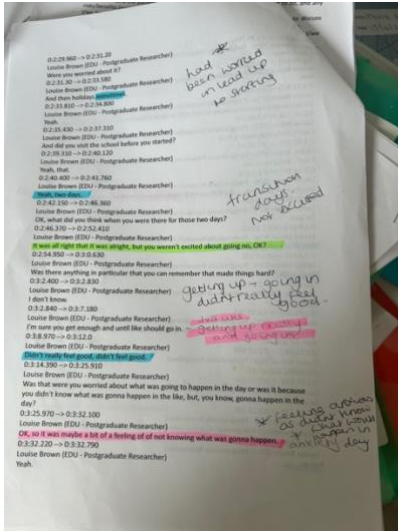 0:2:29.960 --> 0:2:31.20
Louise Brown (EDU - Postgraduate Researcher)
Were you worried about it?
0:2:31.30 --> 0:2:33.580
Louise Brown (EDU - Postgraduate Researcher)
And then holidays
0:2:33.810 --> 0:2:34.800
Louise Brown (EDU - Postgraduate Researcher)
Yeah.
0:2:35.430 --> 0:2:37.310
Louise Brown (EDU - Postgraduate Researcher)
And did you visit the school before you started?
0:2:39.310 --> 0:2:40.120
Louise Brown (EDU - Postgraduate Researcher)
Yeah, that.
0:2:40.400 --> 0:2:41.760
Louise Brown (EDU - Postgraduate Researcher)
Yeah, two days.
0:2:42.150 --> 0:2:46.360
Louise Brown (EDU - Postgraduate Researcher)
OK, what did you think when you were there for those two days?
0:2:46.370 --> 0:2:52.410
Louise Brown (EDU - Postgraduate Researcher)
It was all right that it was alright, but you weren't excited about going no, OK?
0:2:54.950 --> 0:3:0.630
Louise Brown (EDU - Postgraduate Researcher)
Was there anything in particular that you can remember that made things hard?
0:3:2.400 --> 0:3:2.830
Louise Brown (EDU - Postgraduate Researcher)
I don't know.
0:3:2.840 --> 0:3:7.180
Louise Brown (EDU - Postgraduate Researcher)
I'm sure you get enough and until like should go in.
0:3:8.970 --> 0:3:12.0
Louise Brown (EDU - Postgraduate Researcher)
Didn't really feel good, didn't feel good.
0:3:14.390 --> 0:3:25.910
Louise Brown (EDU - Postgraduate Researcher)
Was that were you worried about what was going to happen in the day or was it because
you didn't know what was gonna happen in the like, but, you know, gonna happen in the
day?
0:3:25.970 --> 0:3:32.100
Louise Brown (EDU - Postgraduate Researcher)
OK, so it was maybe a bit of a feeling of of not knowing what was gonna happen.
0:3:32.220 --> 0:3:32.790
Louise Brown (EDU - Postgraduate Researcher)
Yeah.
had
been worried
in lead up
to starting
transition
days.
Not excited
getting up + going in
didn't really feel
good.
getting up
and going in
* feeling anxious
as didn't know
* what would
happen in
day
anxiety